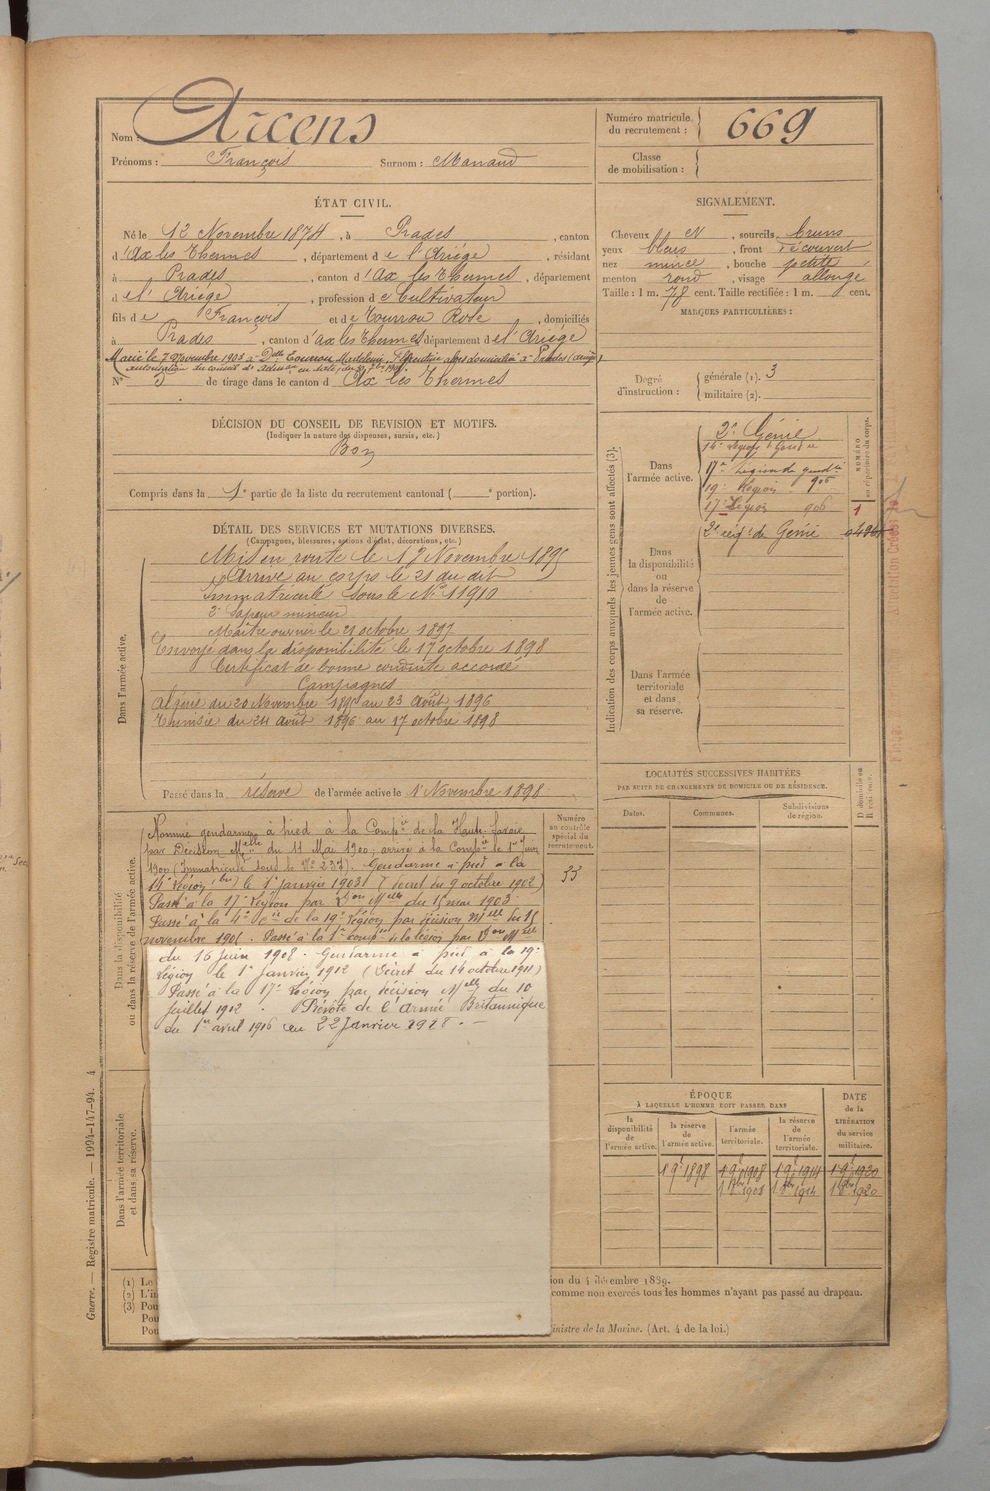 Nom : Arcens
Prénoms : François Surnom : Manaud
Numéro matricule du recrutement : 669
Classe de mobilisation :
ÉTAT CIVIL.
Né le 12 Novembre 1874, à Prades, canton
d'Ax les Thermes, département de l'Ariège, résidant
à Prades, canton d'Ax les Thermes, département
de l'Ariège, profession de Cultivateur
fils de François et de Tournou Rose, domiciliés
à Prades, canton d'ax les Thermes département de l'Ariège
Marié le 7 Novembre 1903 à Delle Madeleine domiciliée à Prades (Ariège)
autorisation du conseil
N° 5 de tirage dans le canton d'Ax les Thermes
SIGNALEMENT.
Cheveux , sourcils bruns
yeux bleus, front découvert
nez mince, bouche petite
menton rond, visage allongé
Taille : 1 m. 78 cent. Taille rectifiée : 1 m. cent.
MARQUES PARTICULIÈRES :
Degré d'instruction : générale (1). 3
militaire (2).
DÉCISION DU CONSEIL DE REVISION ET MOTIFS.
(Indiquer la nature des dispenses, sursis, etc.)
Bon
Compris dans la 1e partie de la liste du recrutement cantonal ( e portion).
DÉTAIL DES SERVICES ET MUTATIONS DIVERSES.
(Campagnes, blessures, actions d'éclat, décorations, etc.)
Dans l'armée active.
Mis en route le 17 Novembre 1895
Arrivé au corps le 21 du dit
Immatriculé sous le N° 11910
2e Sapeur mineur
Maître ouvrier le 21 octobre 1897
Envoyé dans la disponibilité le 17 octobre 1898
Certificat de bonne conduite accordé
Campagnes
Algérie du 20 Novembre 1895 au 23 Août 1896
Tunisie du 24 août 1896 au 17 octobre 1898
Passé dans la réserve de l'armée active le 1 Novembre 1898
Indication des corps auxquels les jeunes gens sont affectés (3).
NUMÉRO au répertoire du corps.
Dans l'armée active.
2e Génie
14e Légion
17e Légion de gendie
19e Légion 906
17e Légion 906 1
Dans la disponibilité ou dans la réserve de l'armée active.
2e régt de Génie
Dans l'armée territoriale et dans sa réserve.
LOCALITÉS SUCCESSIVES HABITÉES
PAR SUITE DE CHANGEMENTS DE DOMICILE OU DE RÉSIDENCE.
Dates. Communes. Subdivisions de région. D domicile ou R résidence.
Dans la disponibilité ou dans la réserve de l'armée active.
Numéro au contrôle spécial du recrutement.
33
Nommé gendarme à pied à la Compie de la Haute-Savoie
par Décision Mlle du 11 Mai 1900; arrivé à la Compie le 1er Juin
1900 (Immatriculé sous le N° 237). Gendarme à pied à la
14e Légion le 1er janvier 1903 (décret du 9 octobre 1902)
Passé à la 17e Légion par Don Mlle du 15 mai 1903
Passé à la 4e Cie de la 19e Légion par décision Mlle du 15
novembre 1905. Passé à la 1e compie de la légion par Don Mlle
du 16 Juin 1908. Gendarme à pied à la 19e
Légion le 1er Janvier 1912 (Décret du 14 octobre 1911)
Passé à la 17e Légion par décision Mlle du 10
Juillet 1912. Prévôté de l'Armée Britannique
du 1er avril 1916 au 22 Janvier 1918. —
ÉPOQUE
À LAQUELLE L'HOMME DOIT PASSER DANS
la disponibilité de l'armée active. la réserve de l'armée active. l'armée territoriale. la réserve de l'armée territoriale.
DATE de la LIBÉRATION du service militaire.
1 9e 1898 1 9e 1908 1 9e 1914 1 9e 1920
1 8bre 1908 1 8bre 1914 1 8bre 1920
Dans l'armée territoriale et dans sa réserve.
(1) Le
(2) L'in
(3) Pou
Pou
Pou
ion du 4 décembre 1889.
comme non exercés tous les hommes n'ayant pas passé au drapeau.
inistre de la Marine. (Art. 4 de la loi.)
Guerre. — Registre matricule. — 1994-147-94. 4